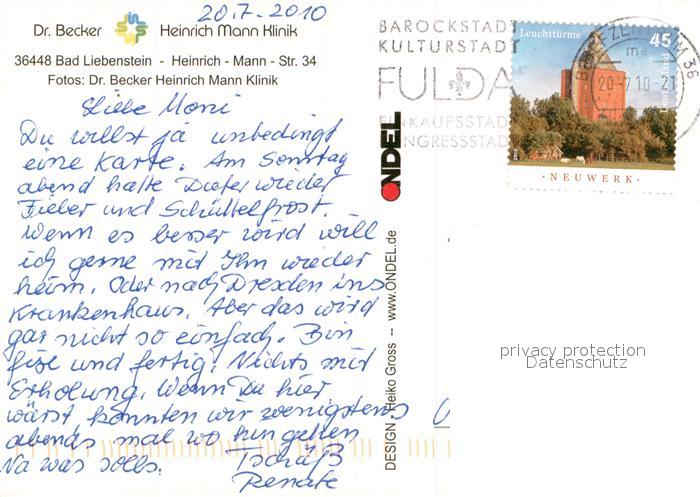 20.7.2010
Dr. Becker Heinrich Mann Klinik
36448 Bad Liebenstein - Heinrich - Mann - Str. 34
Fotos: Dr. Becker Heinrich Mann Klinik
Liebe Moni
Du willst ja unbedingt
eine Karte. Am Sonntag
abend hatte Dieter wieder
Fieber und Schüttelfrost.
Wenn es besser wird will
ich gerne mit Ihm wieder
heim. Oder nach Dresden ins
Krankenhaus. Aber das wird
gar nicht so einfach. Bin
fixe und fertig. Nichts mit
Erholung. Wenn Du hier
wärst könnten wir wenigstens
abends mal wo hingehen
Na was solls.
Tschüß
Renate
ONDEL
DESIGN: Heiko Gross -- www.ONDEL.de
BAROCKSTADT
KULTURSTADT
FULDA
EINKAUFSSTADT
KONGRESSSTADT
BRIEFZENTRUM 36
ma
20.7.10-21
Leuchttürme
45
Deutschland
· NEUWERK ·
privacy protection
Datenschutz